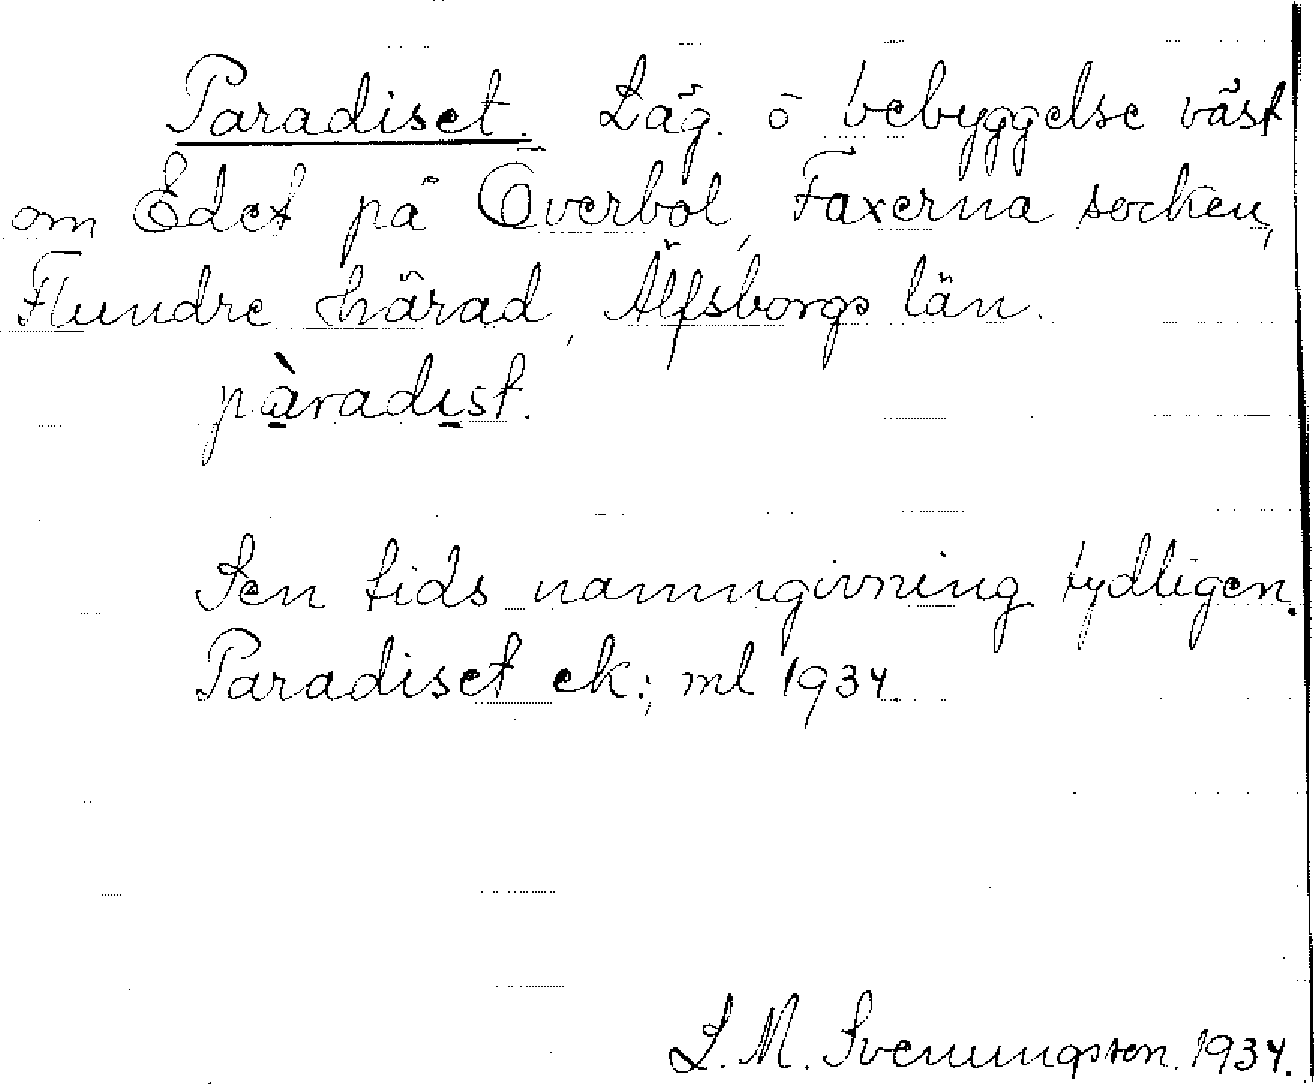 Paradiset. Läg. o bebyggelse väst
om Edet på Överbol, Faxerna socken,
Flundre härad, Älfsborgs län.
pàradist.
Sen tids namngivning tydligen.
Paradiset ek; ml 1934
L. M. Svenungsson. 1934.